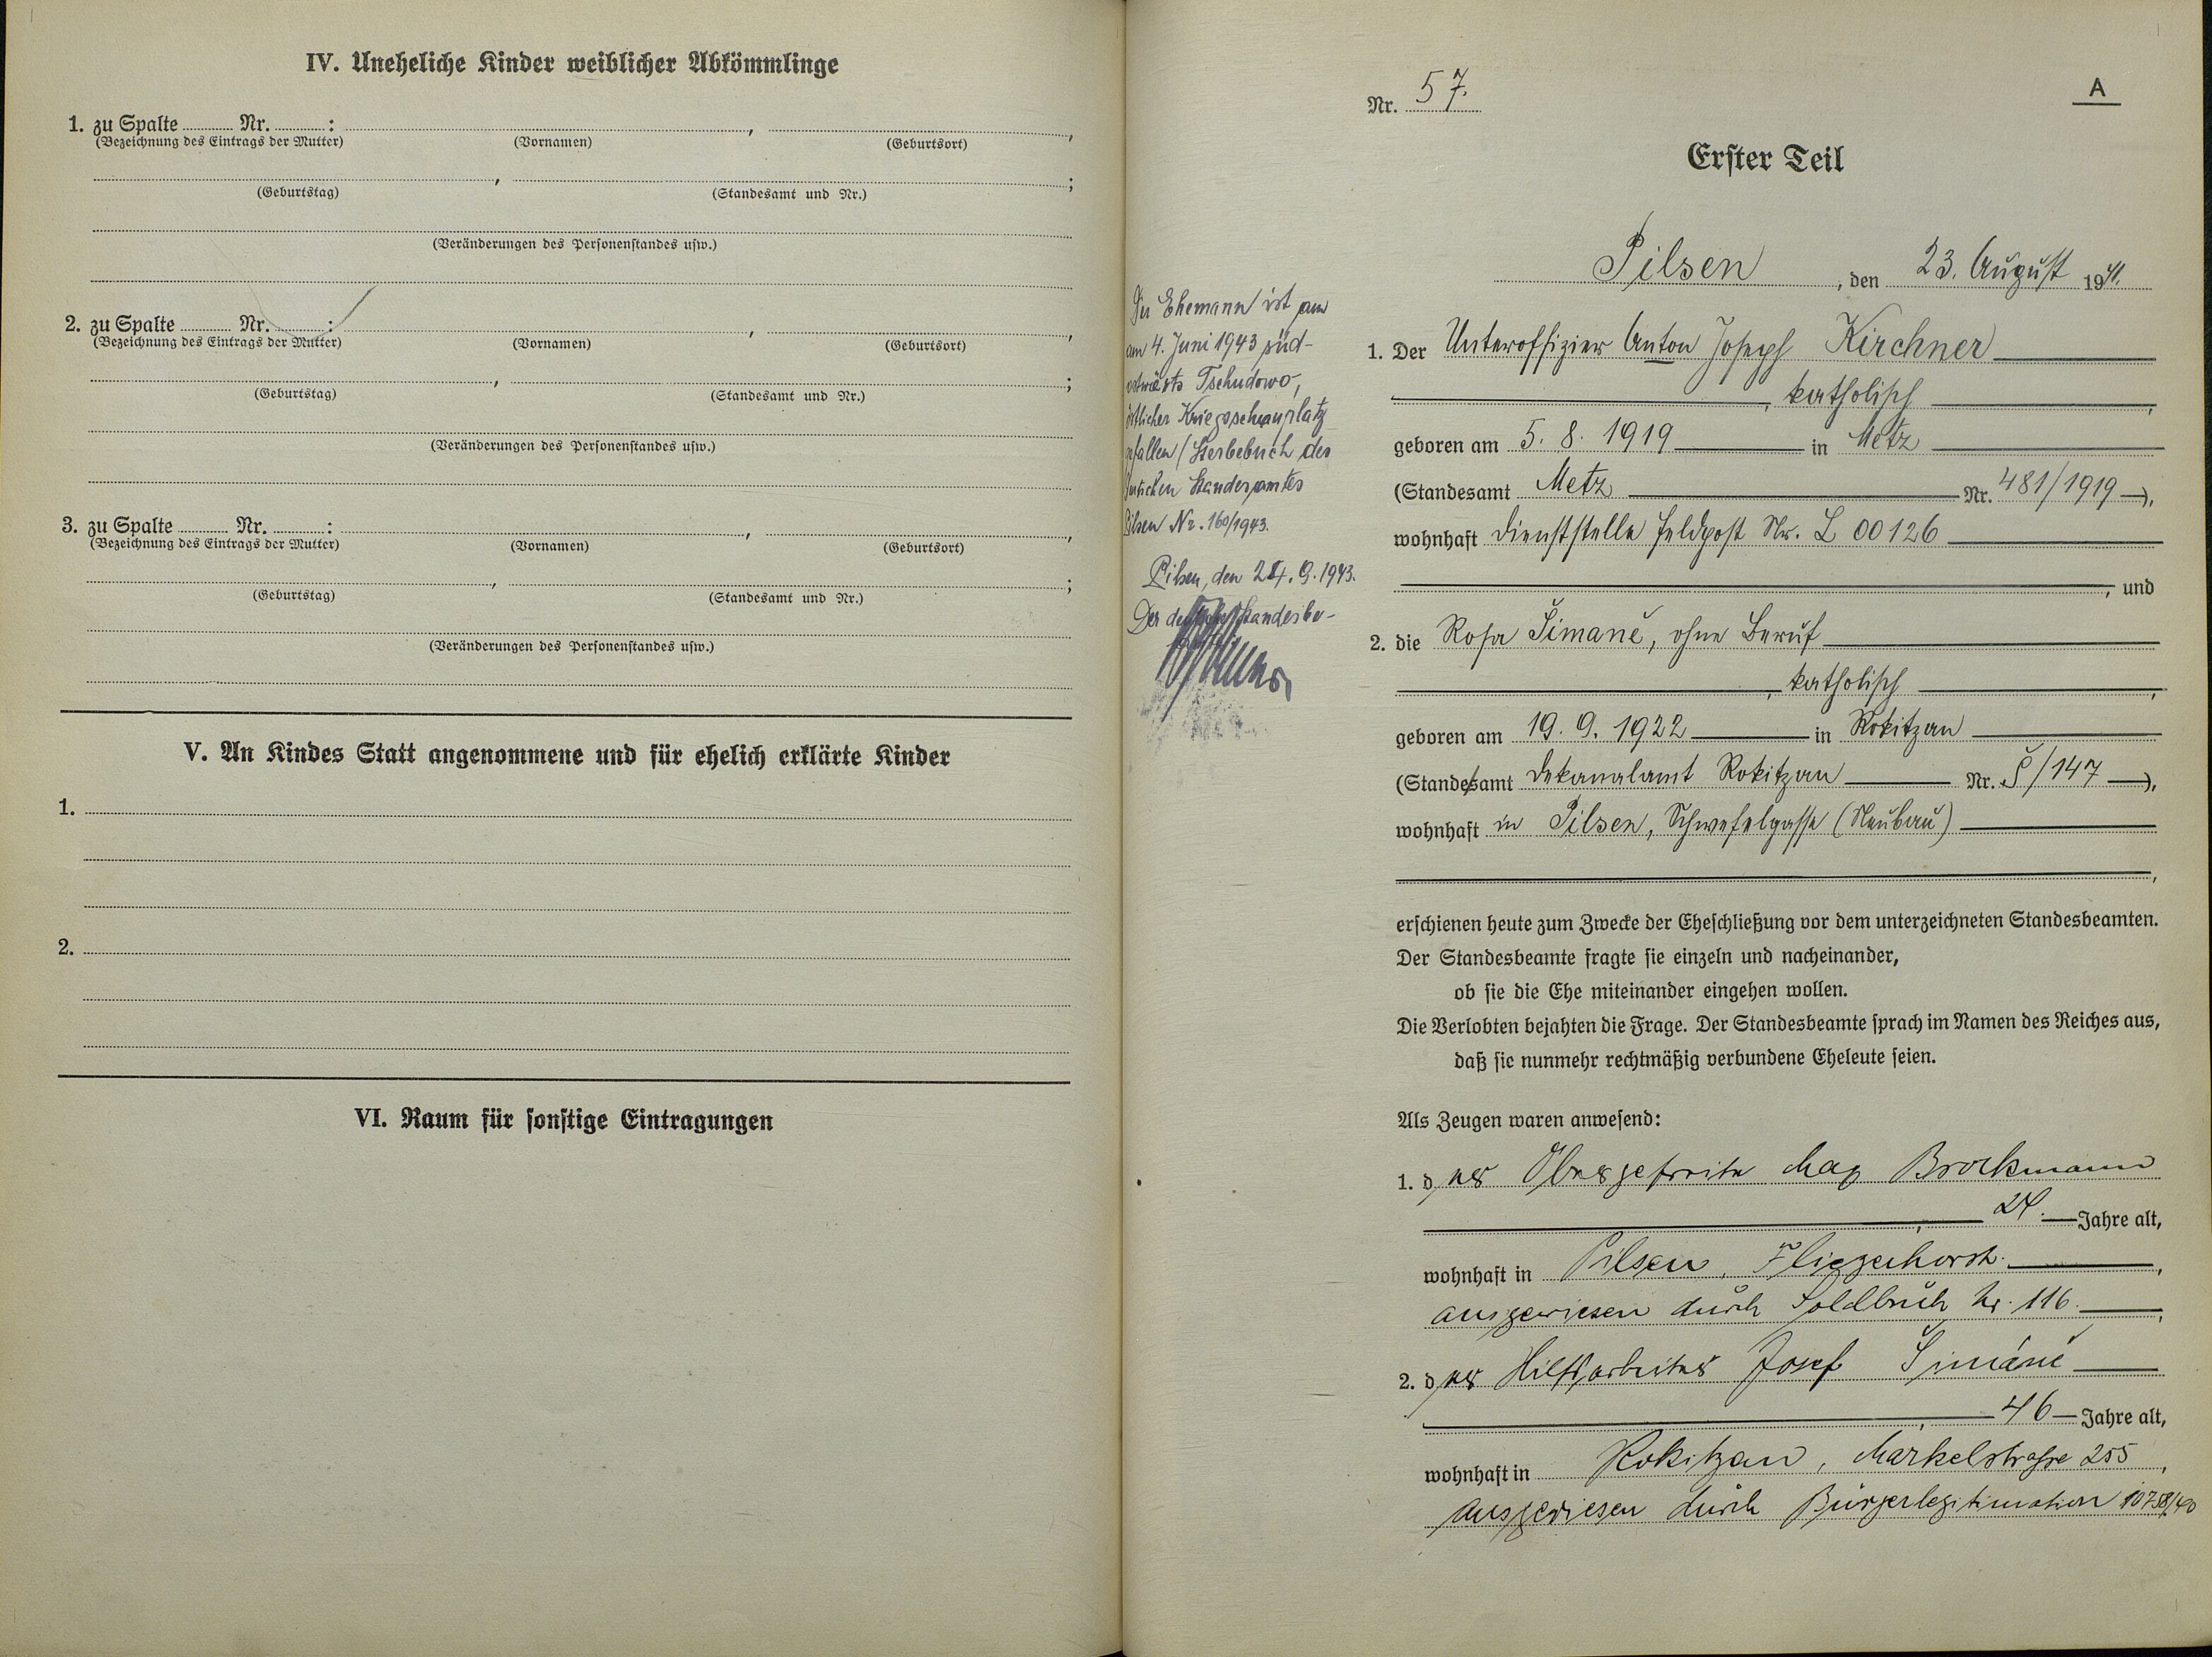 IV. Uneheliche Kinder weiblicher Abkömmlinge
1. zu Spalte ........ Nr. ........ :
(Bezeichnung des Eintrags der Mutter) (Vornamen) (Geburtsort)
(Geburtstag) (Standesamt und Nr.)
(Veränderungen des Personenstandes usw.)
2. zu Spalte ........ Nr. ........ :
(Bezeichnung des Eintrags der Mutter) (Vornamen) (Geburtsort)
(Geburtstag) (Standesamt und Nr.)
(Veränderungen des Personenstandes usw.)
3. zu Spalte ........ Nr. ........ :
(Bezeichnung des Eintrags der Mutter) (Vornamen) (Geburtsort)
(Geburtstag) (Standesamt und Nr.)
(Veränderungen des Personenstandes usw.)
V. An Kindes Statt angenommene und für ehelich erklärte Kinder
1.
2.
VI. Raum für sonstige Eintragungen
Der Ehemann ist am
am 4. Juni 1943 süd-
ostwärts Tschudowo,
östlicher Kriegsschauplatz
gefallen (Sterbebuch des
deutschen Standesamtes
Pilsen Nr. 160/1943.
Pilsen, den 24. 9. 1943.
Der deutsche Standesbe-
A
Nr. 57.
Erster Teil
Pilsen, den 23. August 1941.
1. Der Unteroffizier Anton Joseph Kirchner
, katholisch ,
geboren am 5. 8. 1919 in Metz
(Standesamt Metz Nr. 481/1919),
wohnhaft Dienststelle Feldpost Nr. L 00126
, und
2. die Rosa Šimaně, ohne Beruf
, katholisch ,
geboren am 19. 9. 1922 in Rokitzan
(Standesamt Dekanalamt Rokitzan Nr. Š/147),
wohnhaft in Pilsen, Schwefelgasse (Neubau)
,
erschienen heute zum Zwecke der Eheschließung vor dem unterzeichneten Standesbeamten.
Der Standesbeamte fragte sie einzeln und nacheinander,
ob sie die Ehe miteinander eingehen wollen.
Die Verlobten bejahten die Frage. Der Standesbeamte sprach im Namen des Reiches aus,
daß sie nunmehr rechtmäßig verbundene Eheleute seien.
Als Zeugen waren anwesend:
1. der Obergefreite Max Brockmann
, 24 Jahre alt,
wohnhaft in Pilsen, Fliegerhorst.,
ausgewiesen durch Soldbuch Nr. 116.,
2. der Hilfsarbeiter Josef Šimáně
, 46 Jahre alt,
wohnhaft in Rokitzan, Markelstraße 255,
ausgewiesen durch Bürgerlegitimation 10758/40